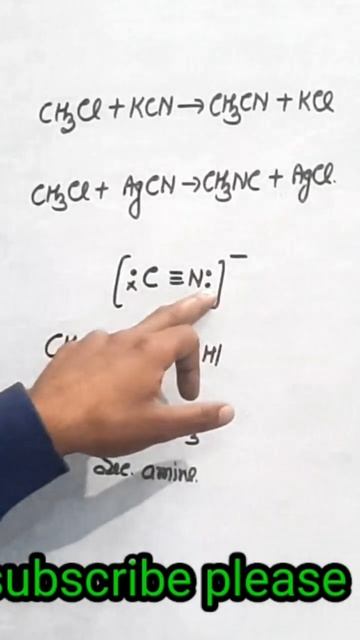 CH₃Cl + KCN → CH₃CN + KCl
CH₃Cl + AgCN → CH₃NC + AgCl.
[:C ≡ N:]⁻
3
Sec. amine.
subscribe please